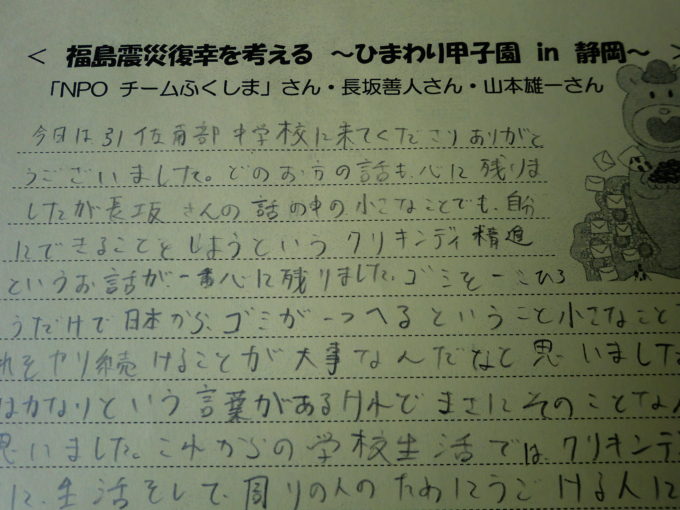 < 福島震災復幸を考える ～ひまわり甲子園 in 静岡～ >
「NPO チームふくしま」さん・長坂善人さん・山本雄一さん
今日は引佐南部中学校に来てくださりありがと
うございました。どのお方の話も、心に残りま
したが長坂さんの話の中の小さなことでも、自分
にできることをしようという クリキンディ精進
というお話が、一番心に残りました。ゴミを一こひろ
うだけで日本から、ゴミが一つへるということ小さなこと
れをやり続けることが大事なんだなと思いました
はカなりという言葉があるけれど まさにそのことなん
思いました。これからの学校生活では、クリキンデ
に、生活をして、周りの人のためにうごける人に